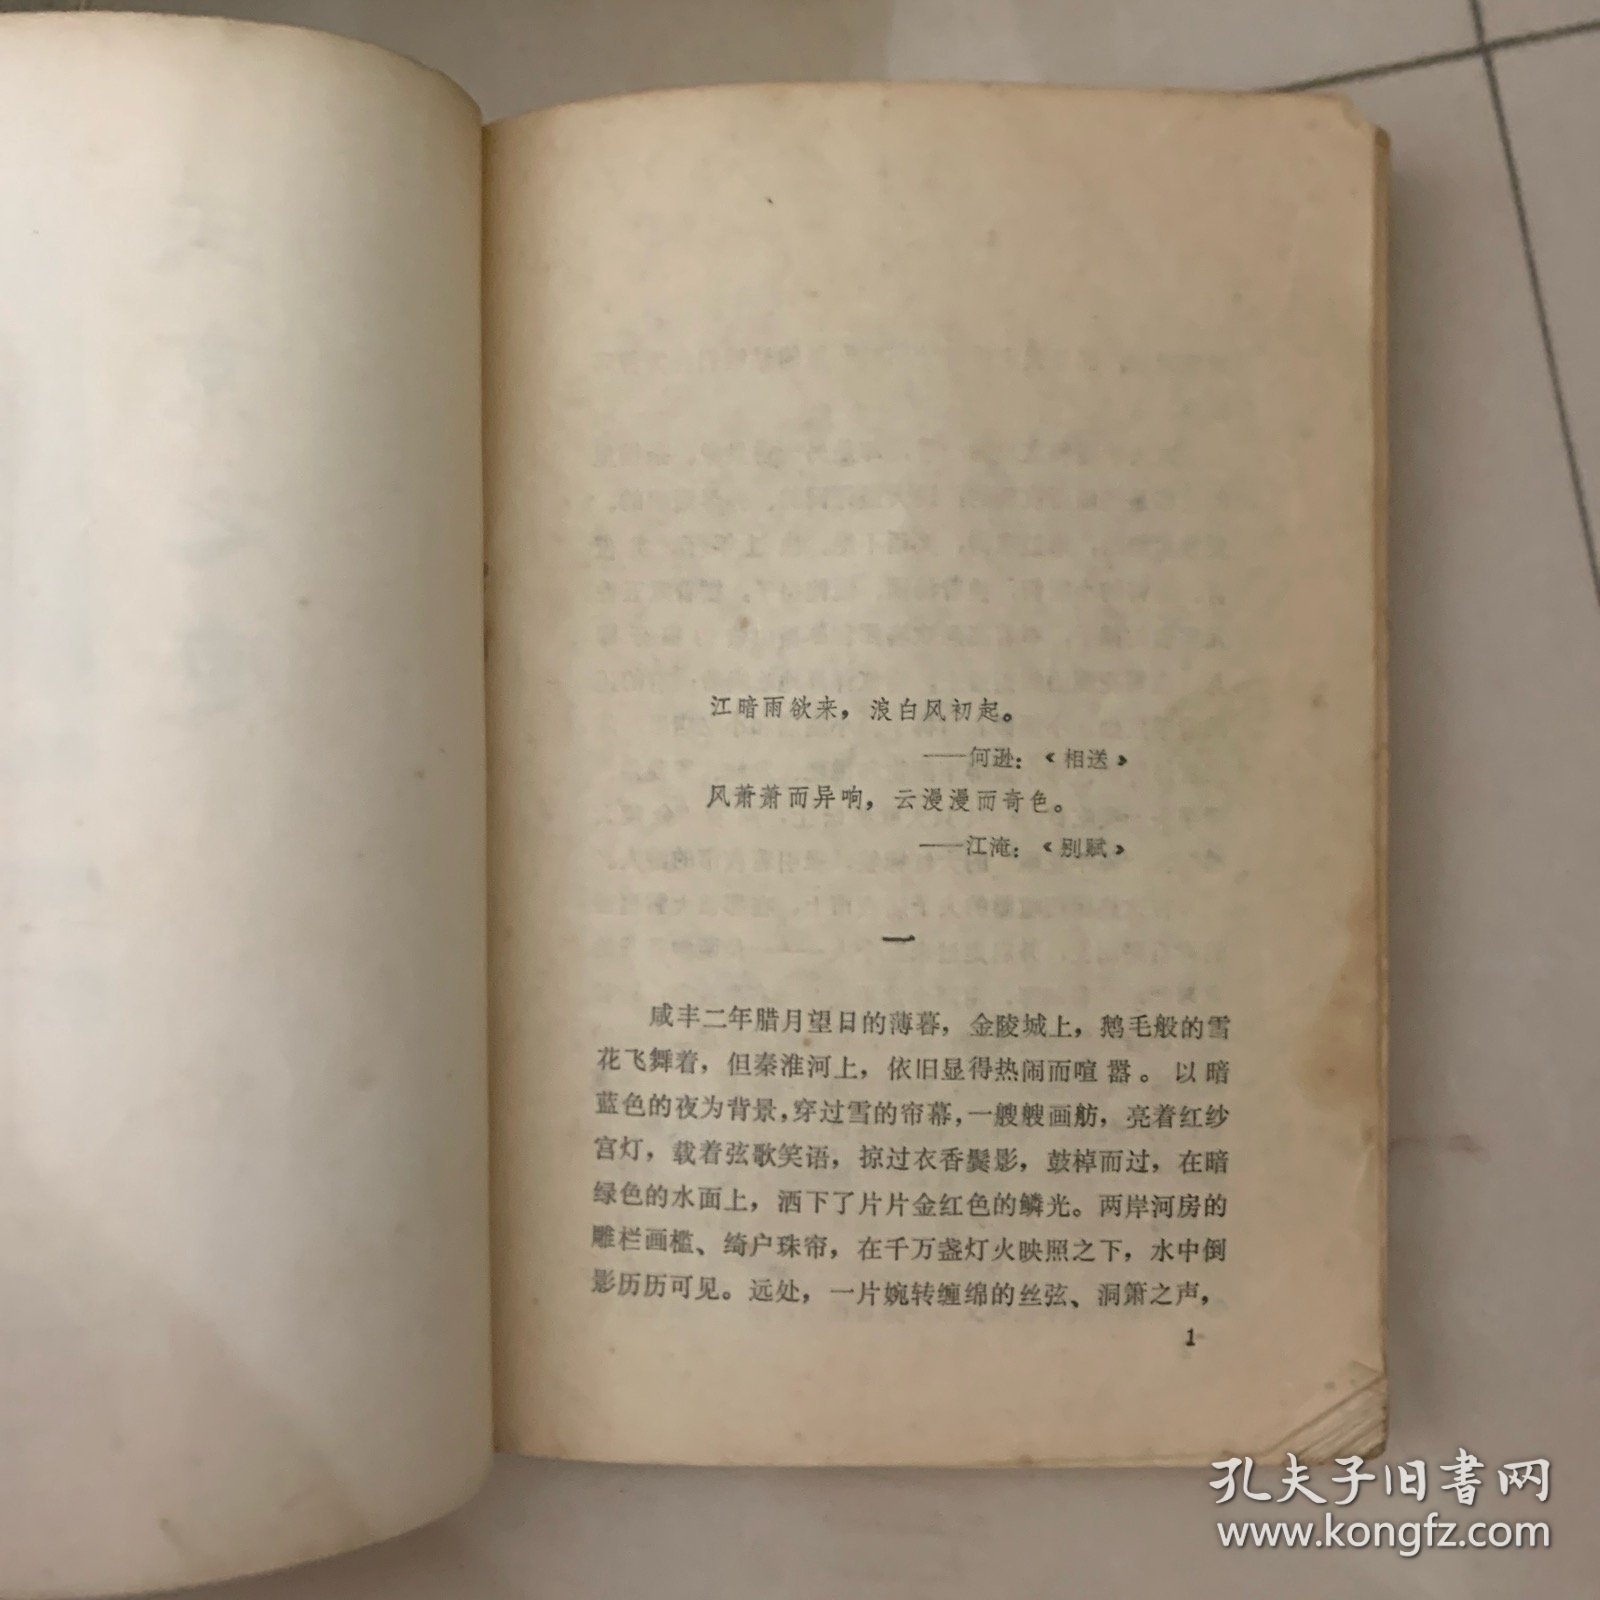 江暗雨欲来，浪白风初起。
——何逊：《相送》
风萧萧而异响，云漫漫而奇色。
——江淹：《别赋》
一
咸丰二年腊月望日的薄暮，金陵城上，鹅毛般的雪
花飞舞着，但秦淮河上，依旧显得热闹而喧嚣。以暗
蓝色的夜为背景，穿过雪的帘幕，一艘艘画舫，亮着红纱
宫灯，载着弦歌笑语，掠过衣香鬓影，鼓棹而过，在暗
绿色的水面上，洒下了片片金红色的鳞光。两岸河房的
雕栏画槛、绮户珠帘，在千万盏灯火映照之下，水中倒
影历历可见。远处，一片婉转缠绵的丝弦、洞箫之声，
1
孔夫子旧书网
www.kongfz.com